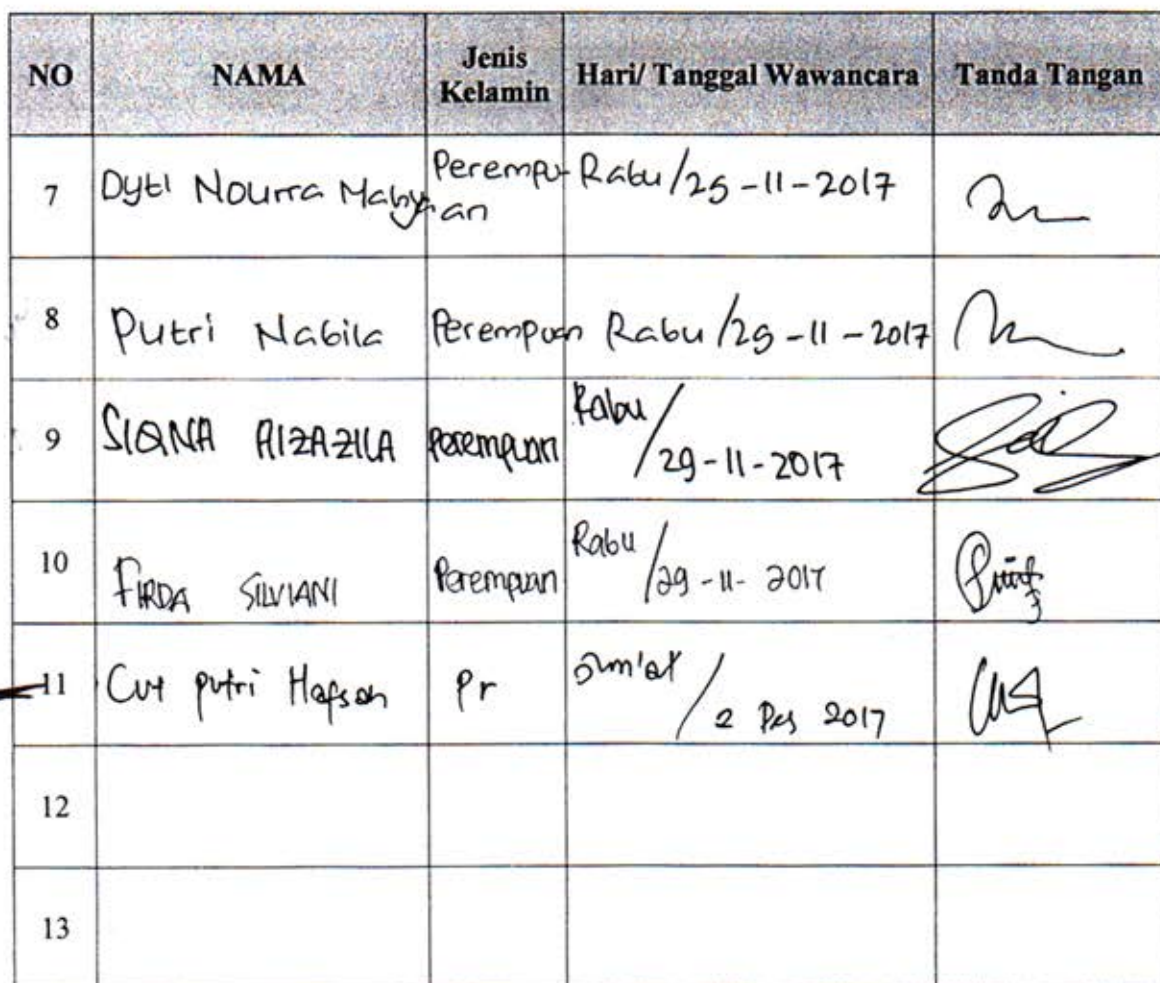 NO NAMA Jenis Kelamin Hari/ Tanggal Wawancara Tanda Tangan
7 Dyti Nourra Perempuan Rabu/29-11-2017
8 Putri Nabila Perempuan Rabu/29-11-2017
9 SIQNA AIZAZILA Perempuan Rabu/29-11-2017
10 FIRDA SILVIANI Perempuan Rabu/29-11-2017
11 Cut putri Hafsah Pr Jum'at/2 Des 2017
12
13